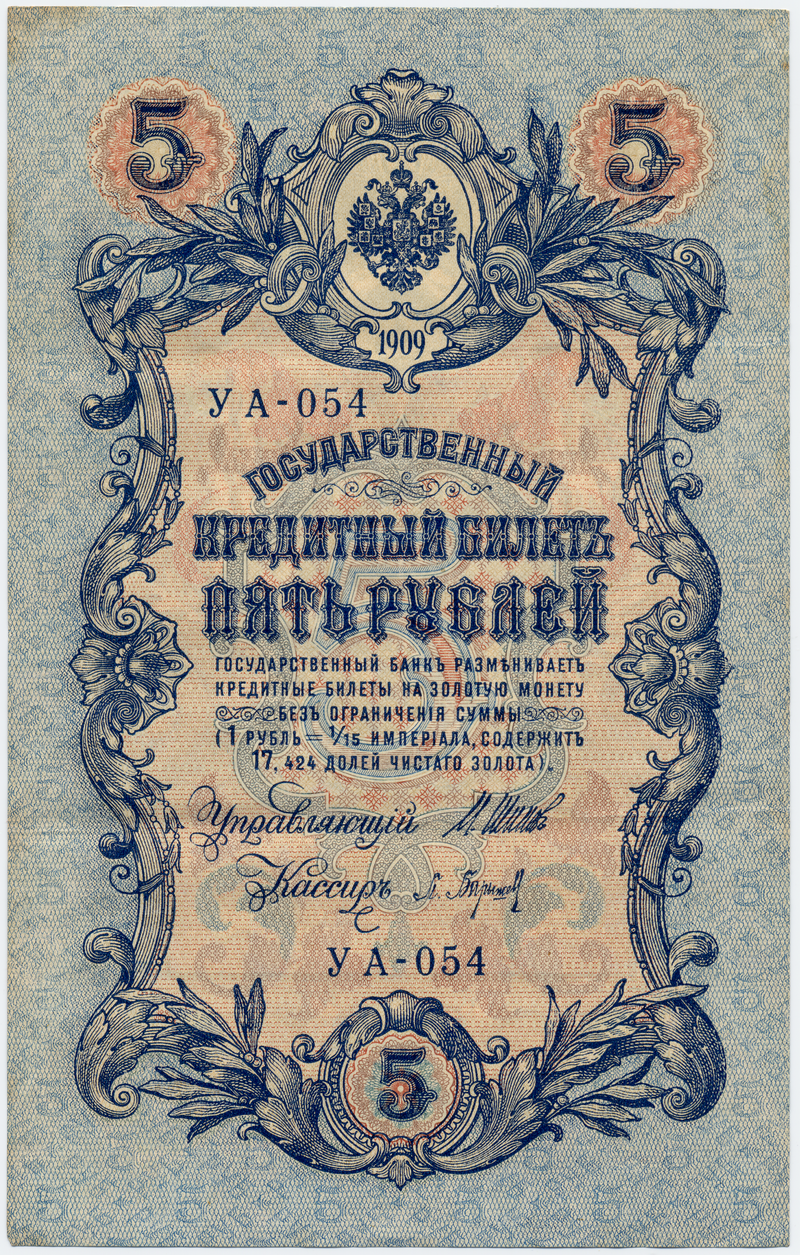 5 5
1909
УА-054
ГОСУДАРСТВЕННЫЙ
КРЕДИТНЫЙ БИЛЕТЪ
ПЯТЬ РУБЛЕЙ
ГОСУДАРСТВЕННЫЙ БАНКЪ РАЗМѢНИВАЕТЪ
КРЕДИТНЫЕ БИЛЕТЫ НА ЗОЛОТУЮ МОНЕТУ
БЕЗЪ ОГРАНИЧЕНІЯ СУММЫ
(1 РУБЛЬ = 1/15 ИМПЕРІАЛА, СОДЕРЖИТЪ
17,424 ДОЛЕЙ ЧИСТАГО ЗОЛОТА).
Управляющій И. Шипов
Кассиръ
УА-054
5